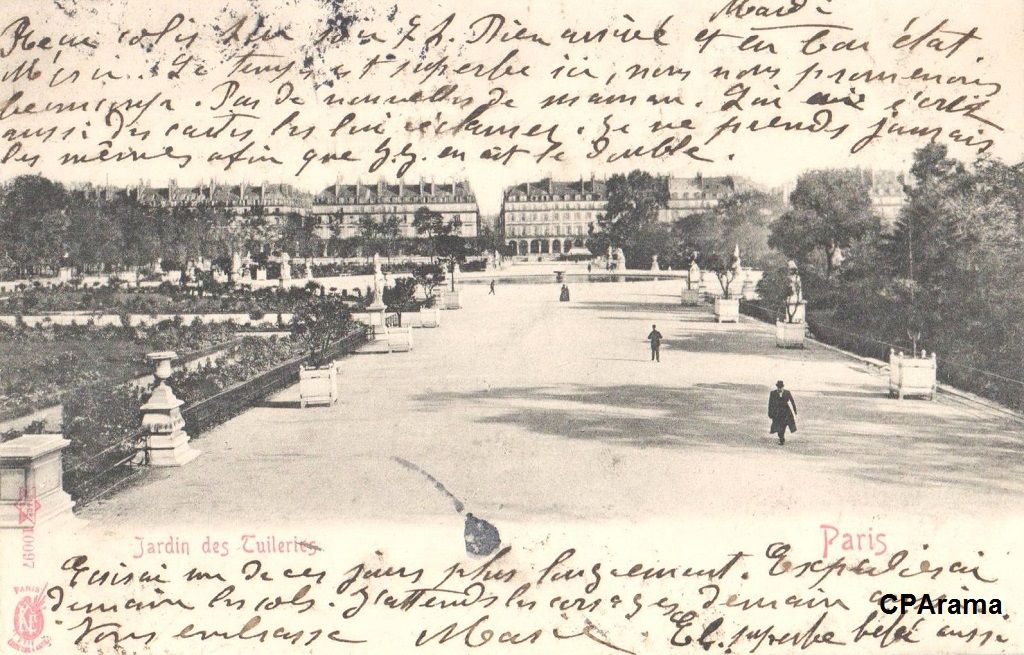 Mardi
Reçu colis bien arrivé et en bon état
Merci. Le temps est superbe ici, nous nous promenons
beaucoup. Pas de nouvelles de maman. Qui
aussi des cartes les lui réclamer. Je ne prends jamais
les mêmes afin que en ait le double.
Jardin des Tuileries
Paris
10097
PARIS
Écrirai un de ces jours plus longuement. Expédierai
demain les cols. J'attends les corsages demain
CPArama
Vous embrasse Marie Et superbe bébé aussi